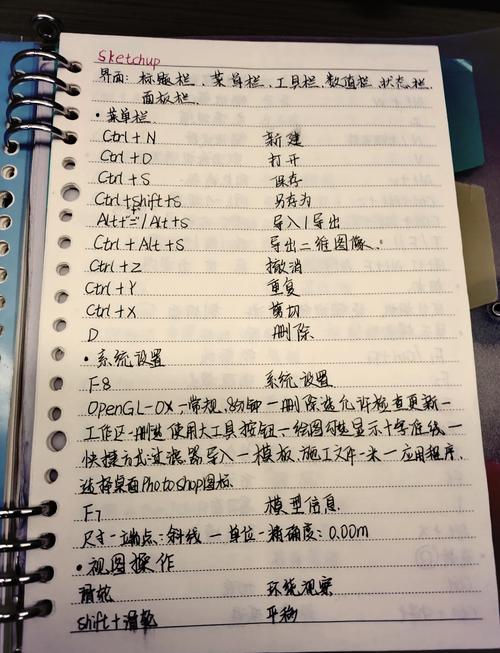 Sketchup
界面：标题栏、菜单栏、工具栏、数值栏、状态栏、
面板栏.
·菜单栏
Ctrl+N 新建
Ctrl+O 打开
Ctrl+S 保存
Ctrl+Shift+S 另存为
Alt+ /Alt+S 导入/导出
Ctrl+Alt+S 导出二维图像.
Ctrl+Z 撤消
Ctrl+Y 重复
Ctrl+X 剪切
D 删除
·系统设置
F8 系统设置
OpenGL-OX一常规，8分钟一删除选允许检查更新一
工作区一删选使用大工具按钮、一绘图勾选显示十字准线一
快捷方式过滤器导入一模板，施工文件-米一应用程序.
选择桌面Photoshop图标
F7 模型信息
尺寸-端点-斜线一单位-精确度：0.00m
·视图操作
滑轮 环绕观察
shift+滑轮 平移